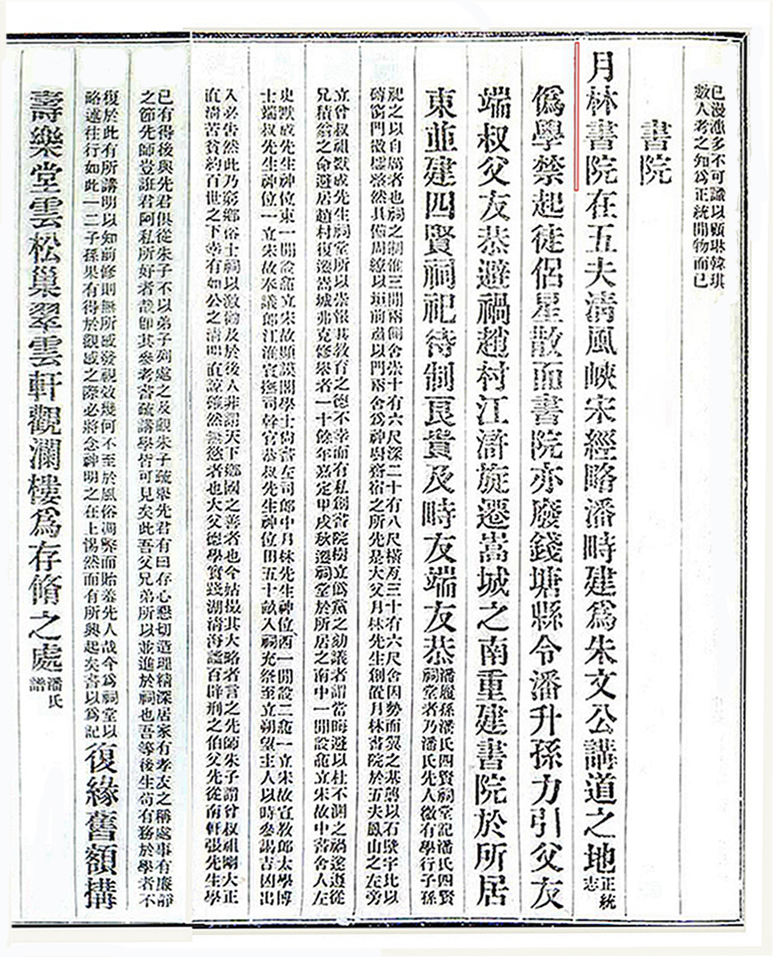 已漫漶多不可識以顧琳韓琪
數人考之知爲正統開物而已
書院
月林書院在五夫淸風峽宋經略潘畤建爲朱文公講道之地正統志
僞學禁起徒侶星散而書院亦廢錢塘縣令潘升孫力引父友
端叔父友恭避禍趙村江滸旋遷嵩城之南重建書院於所居
東並建四賢祠祀待制良貴及畤友端友恭
潘履孫潘氏四賢祠堂記潘氏四賢
祠堂者乃潘氏先人微有學行子孫
祀之以自厲者也祠之制准三間兩舍崇十有六尺深二十有八尺橫亙三十有六尺舍因勢而翼之基甃以石甓宇比以
磚窗門敞然具備周繚以垣前肅以門兩舍爲神廚齋宿之所先是大父月林先生創置月林書院於五夫鳳山之左旁
立曾叔祖默成先生祠堂所以崇報其教育之德不幸而有私創書院樹立僞黨之劾議者謂當晦避以杜不測之禍遂遵從
兄積翁之命避居趙村復遷嵩城弗克修舉者一十餘年嘉定甲戌秋遷祠堂於所居之南中一間設龕立宋故中書舍人左
史默成先生神位東一間設龕立宋故顯謨閣學士尙書左司郎中月林先生神位西一間設二龕一立宋故宣教郎太學博
士端叔先生神位一立宋故奉議郎江淮宣撫司幹官恭叔先生神位田五十畝入祠充祭至立朔望主人以時參謁吉凶出
入必告然此乃窮鄉俗士祠以激勸及於後人非謂天下鄉國之善者也今姑撮其大略者言之先師朱子謂曾叔祖剛大正
直淸苦貧約百世之下幸有如公之淸明直諒確然無慾者也大父德學實錢湖淸海謐百辟刑之伯父先從南軒張先生學
已有得後與先君俱從朱子不以弟子列處之及觀朱子疏舉先君有曰存心懇切造理精深居家有孝友之稱處事有廉靜
之節先師豈誑君阿私所好者哉卽其參考書疏講學皆可見矣此吾父兄弟所以並進於祠也吾等後生苟有務於學者不
復於此有所講明以知前修則無所感發視效幾何不至於風俗凋弊而貽羞先人哉今爲祠堂以
略述往行如此一二子孫果有得於觀感之際必將念神明之在上惕然而有所興起矣書以爲記
復緣舊額構
壽樂堂雲松巢翠雲軒觀瀾樓爲存脩之處潘氏譜